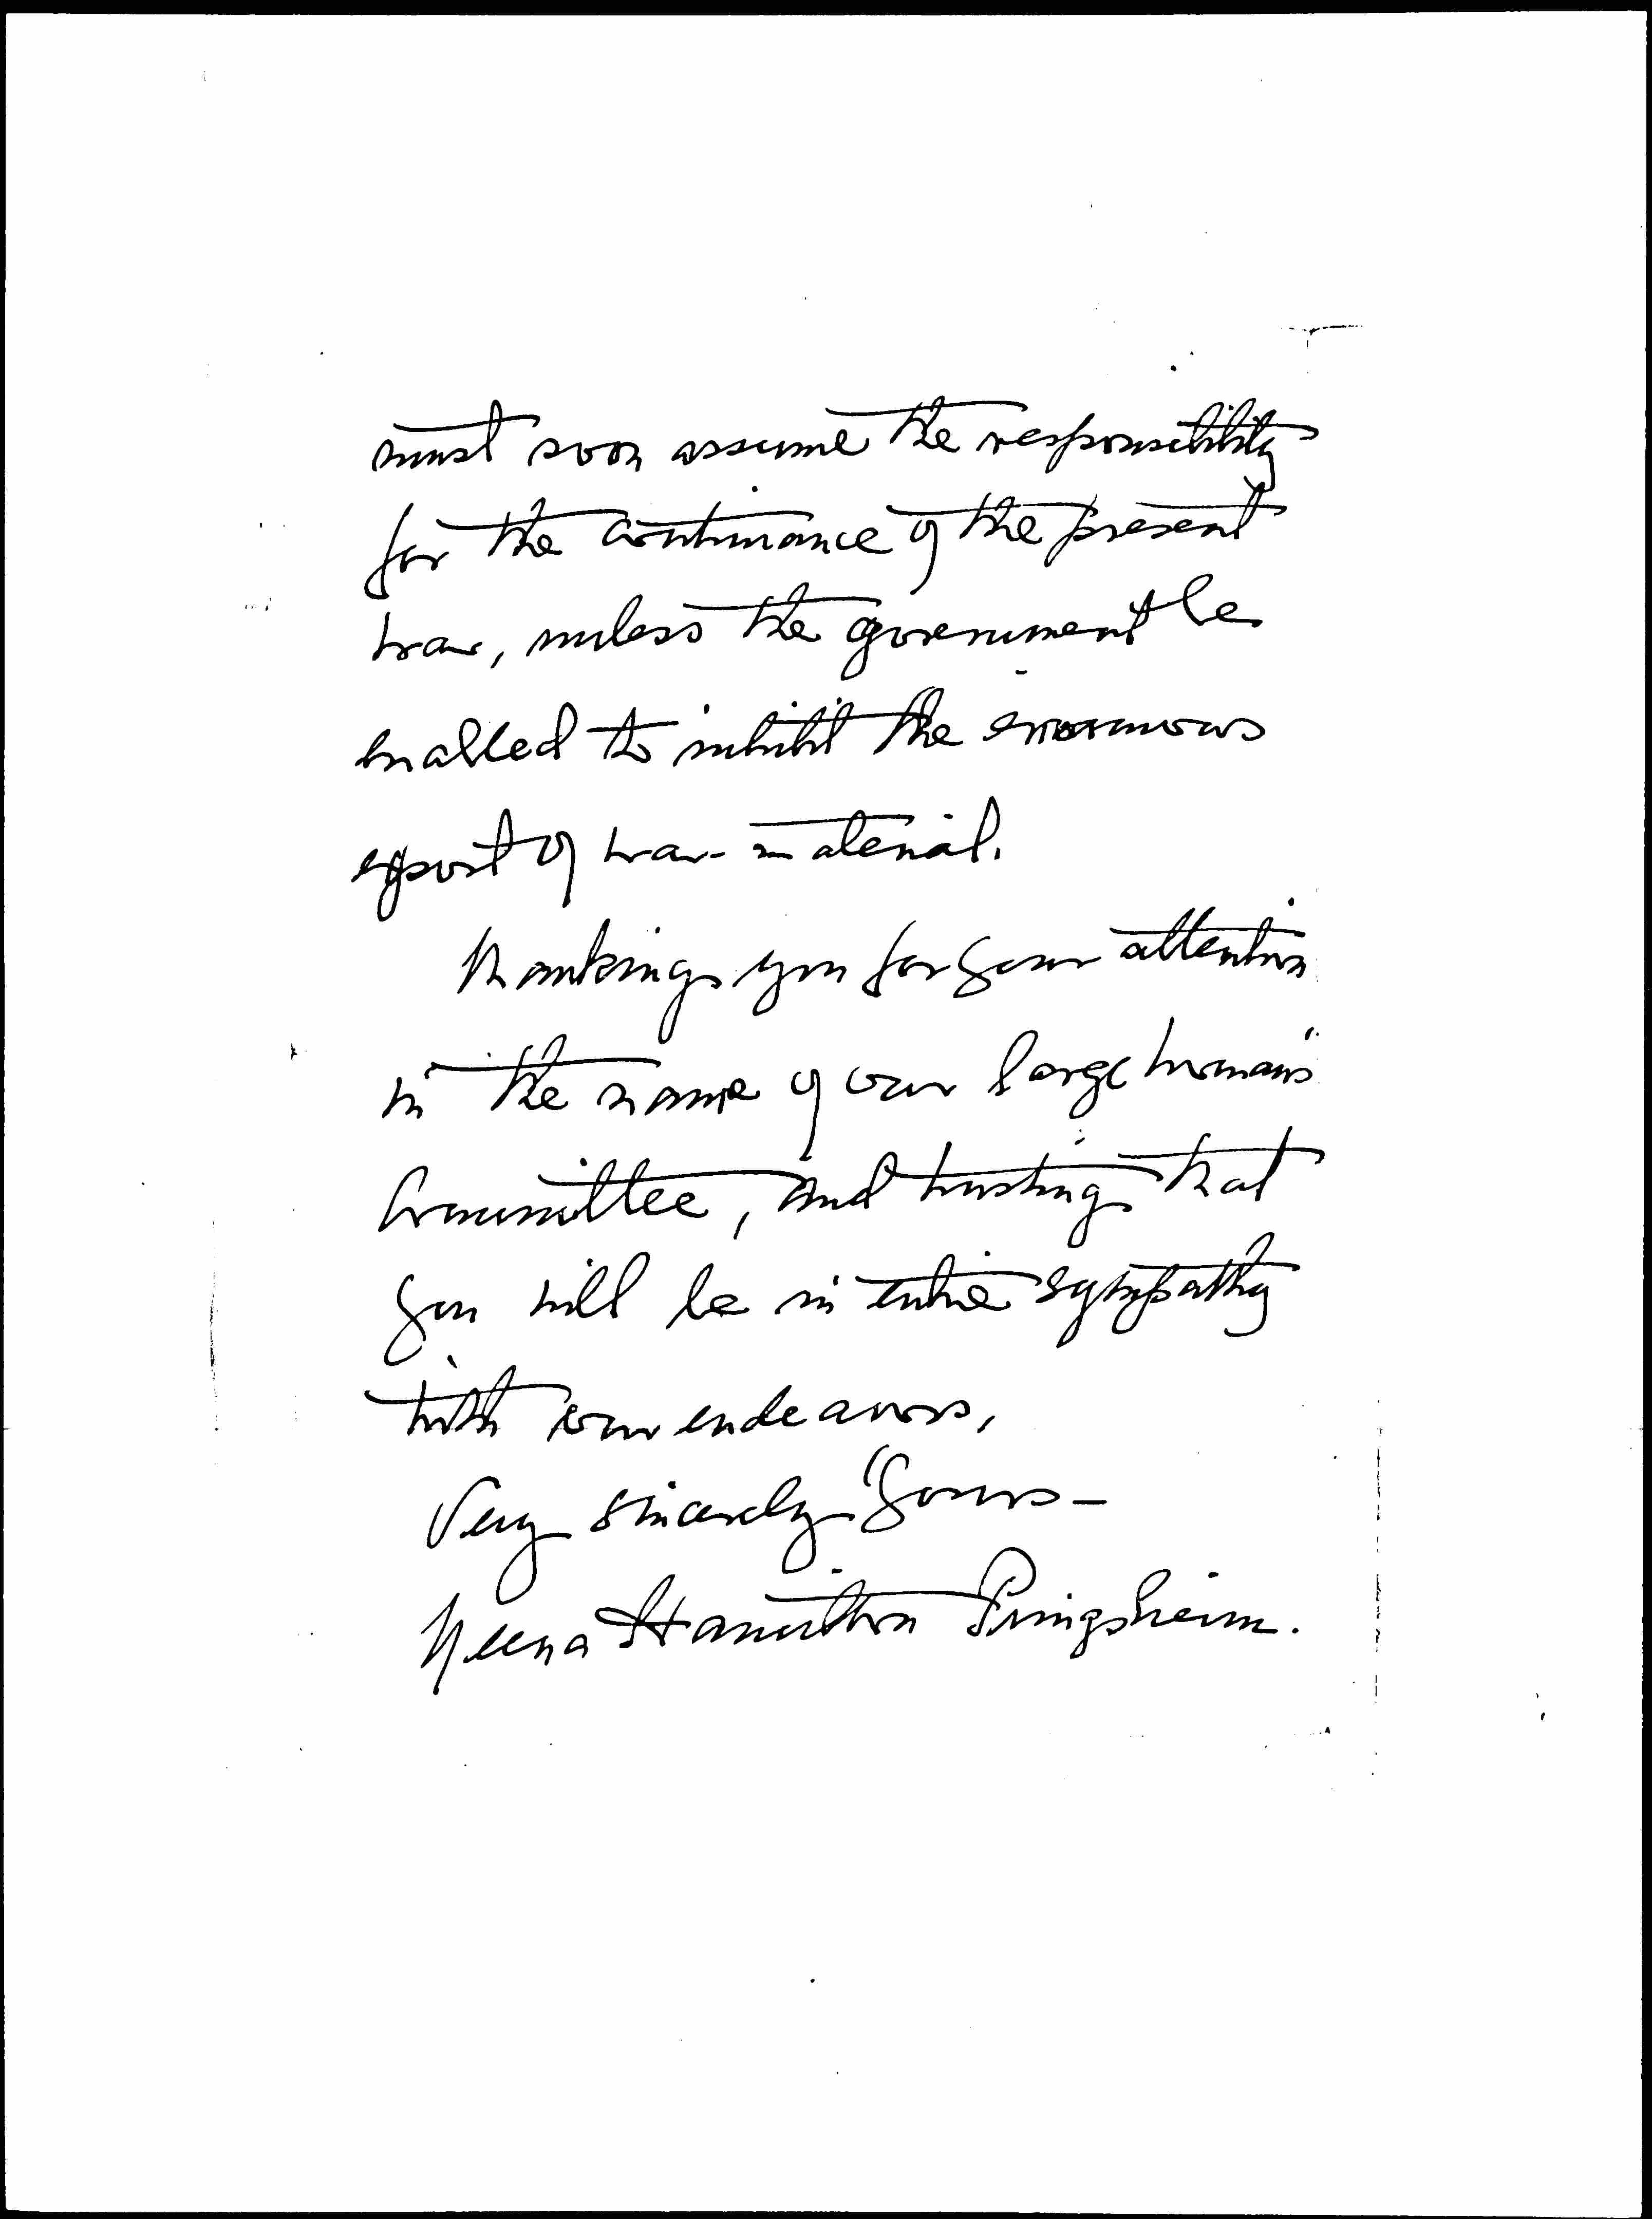 must soon assume the responsibility
for the continuance of the present
war, unless the government be
enabled to inhibit the enormous
export of war-material.
Thanking you for your attention
in the name of our large woman's
Committee, and trusting that
you will be in entire sympathy
with our endeavors,
Very sincerely Yours-
Neena Hamilton Pringsheim.